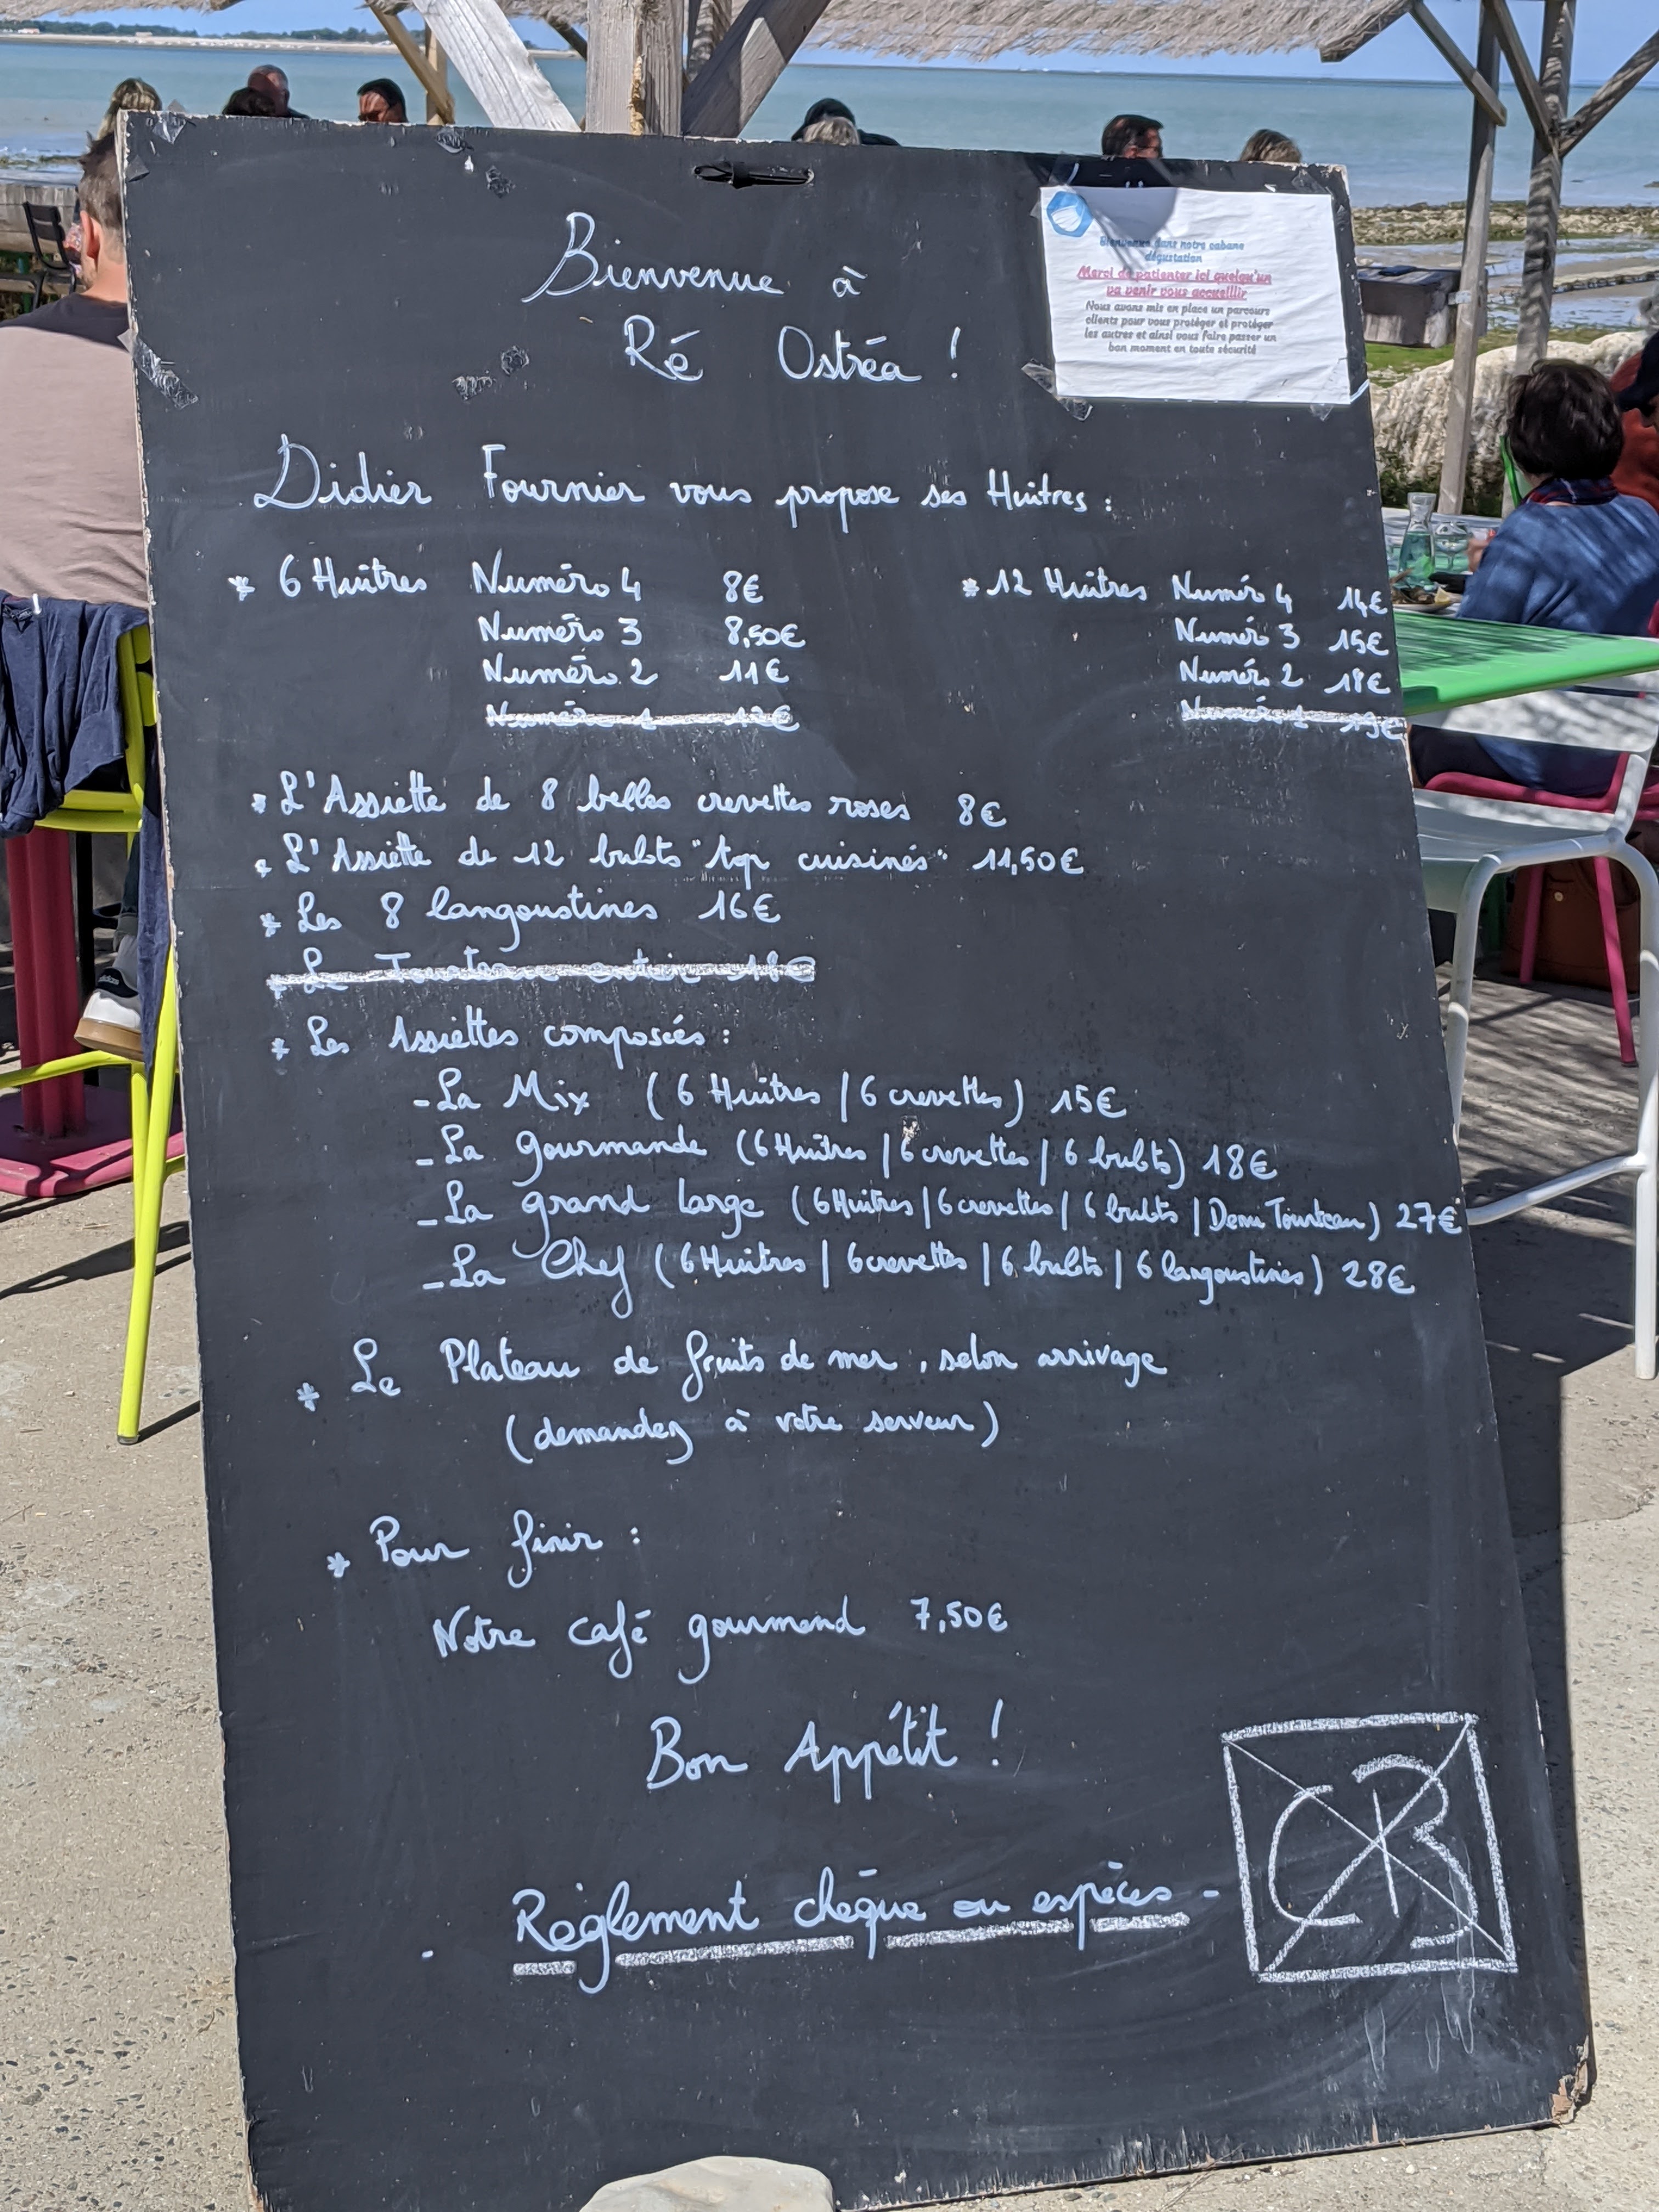 Bienvenue à
Ré Ostréa !
Bienvenue dans notre cabane
dégustation
Merci de patienter ici quelqu'un
va venir vous accueillir
Nous avons mis en place un parcours
clients pour vous protéger et protéger
les autres et ainsi vous faire passer un
bon moment en toute sécurité
Didier Fournier vous propose ses Huîtres :
* 6 Huîtres Numéro 4 8€
Numéro 3 8,50€
Numéro 2 11€
Numéro 1 12€
* 12 Huîtres Numéro 4 14€
Numéro 3 15€
Numéro 2 18€
Numéro 1 19€
* L'Assiette de 8 belles crevettes roses 8€
* L'Assiette de 12 bulots "top cuisinés" 11,50€
* Les 8 langoustines 16€
* Le Tourteau entier 18€
* Les Assiettes composées :
- La Mix (6 Huîtres | 6 crevettes) 15€
- La gourmande (6 Huîtres | 6 crevettes | 6 bulots) 18€
- La grand large (6 Huitres | 6 crevettes | 6 bulots | Demi Tourteau) 27€
- La Chef (6 Huitres | 6 crevettes | 6 bulots | 6 langoustines) 28€
* Le Plateau de fruits de mer, selon arrivage
(demandez à votre serveur)
* Pour finir :
Notre café gourmand 7,50€
Bon Appétit !
- Règlement chèque ou espèces -
CB